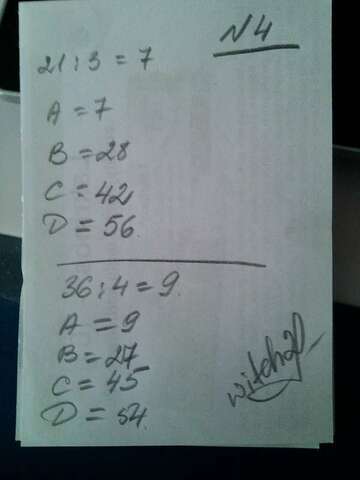 N4
21:3=7
A=7
B=28
C=42
D=56.
36:4=9.
A=9
B=27
C=45
D=54.